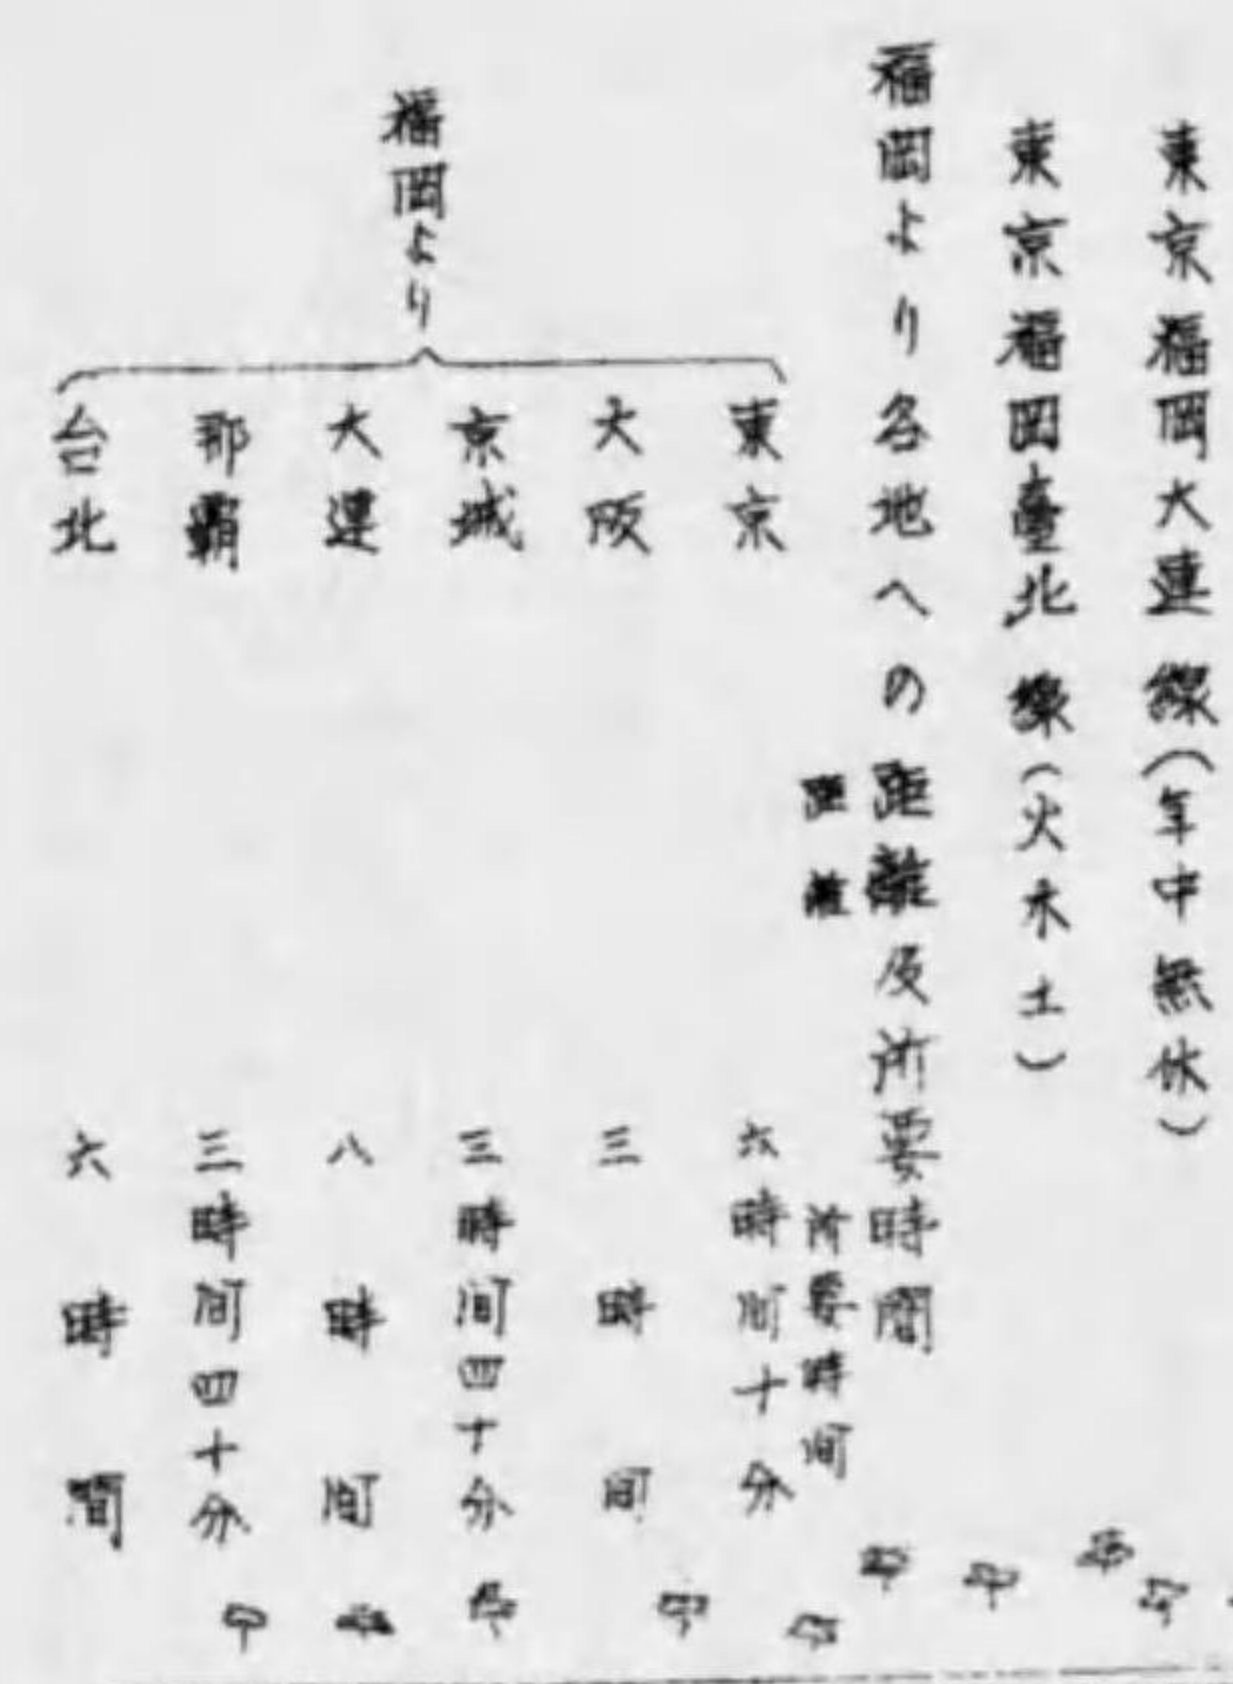 東京福岡大連線(年中無休)
東京福岡臺北線(火木土)
福岡より各地への距離及所要時間
距離
所要時間
福岡より
東京
六時间十分
大阪
三時间
京城
三時间四十分
大連
八時间
那覇
三時间四十分
台北
六時間